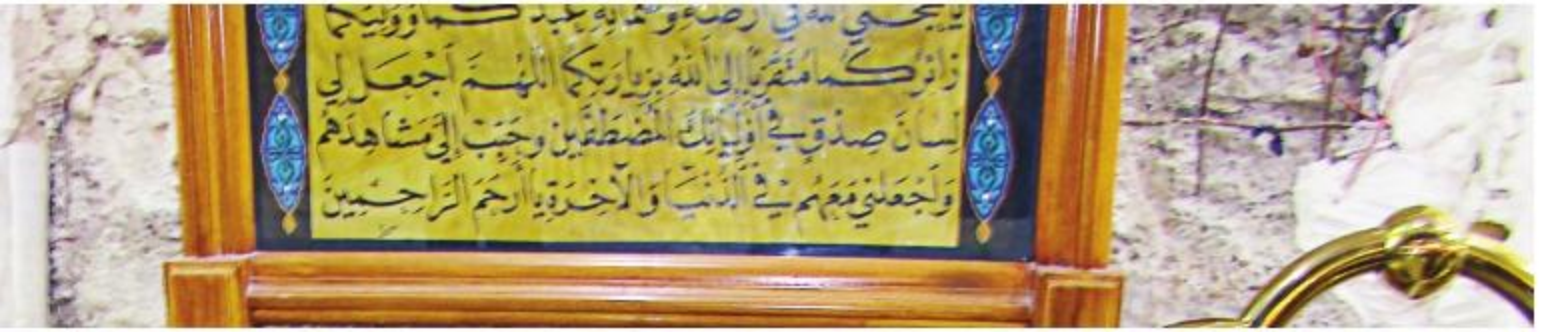 في أرضه و عبدكما ووليكما
زائركما متقربا إلى الله بزيارتكما اللهم اجعل لي
لسان صدق في أوليائك المصطفين وحبب إلي مشاهدهم
وَاجْعَلْنِي مَعَهُمْ فِي الدُّنْيَا وَالآخِرَةِ يَا أَرْحَمَ الرَّاحِمِينَ